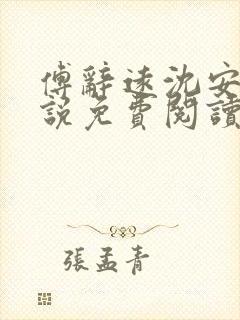 傅辭遠沈安
說免費閱讀
張孟青